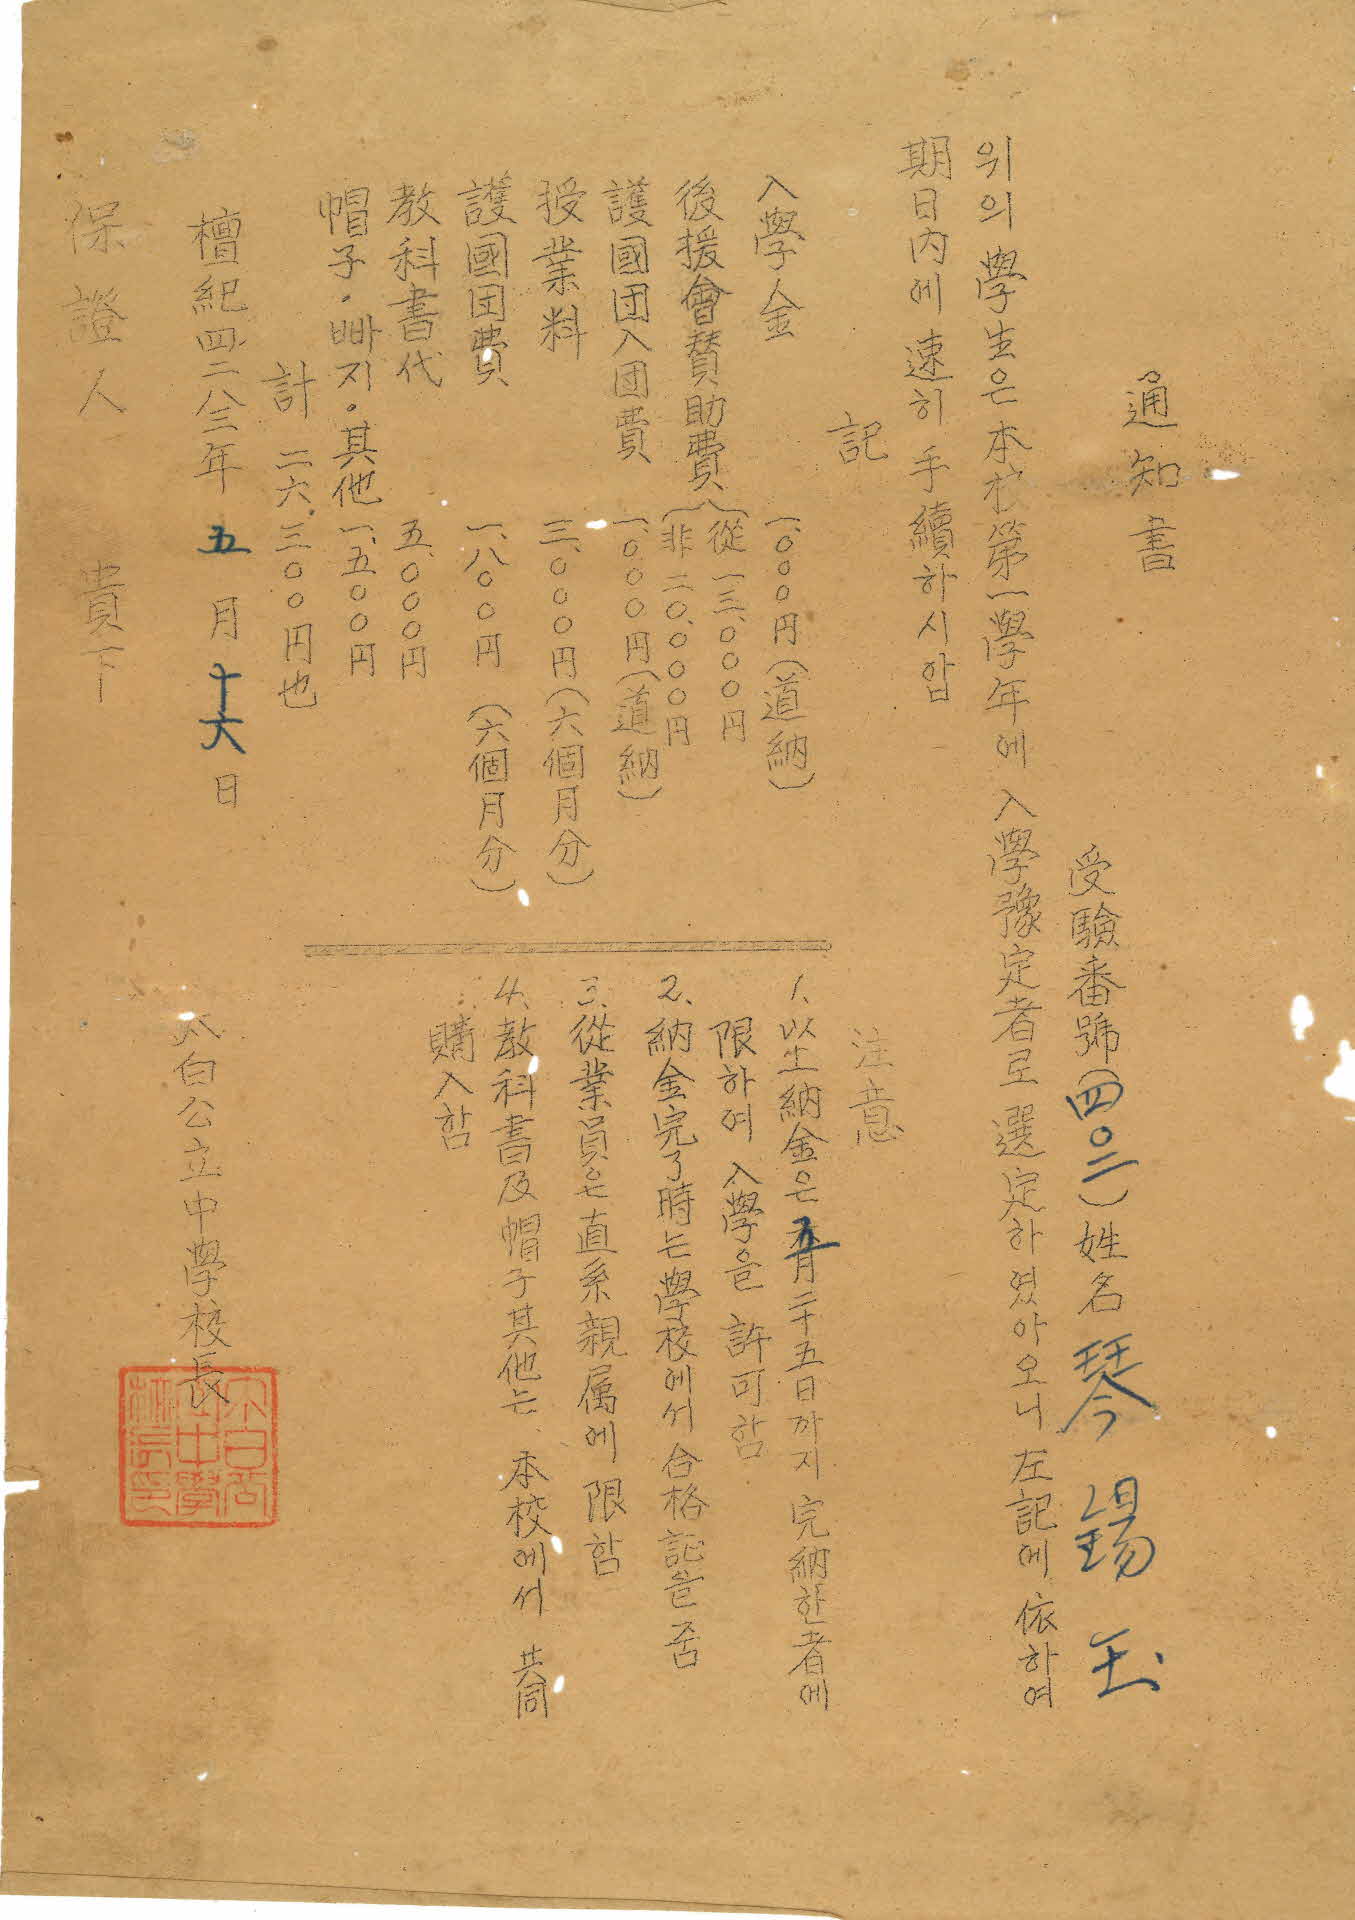 通知書
受驗番號(四○二)姓名 琴錫玉
위의 學生은 本校 第一學年에 入學豫定者로 選定하였아오니 左記에 依하여
期日內에 速히 手續하시압
記
入學金 一、○○○円(道納)
後援會贊助費 從 一三、○○○円
非 二○、○○○円
護國団入団費 一、○○○円(道納)
授業料 三、○○○円(六個月分)
護國団費 一、八○○円 (六個月分)
教科書代 五、○○○円
帽子·빠지·其他 一、五○○円
計 二六、三○○円也
注意
1、以上納金은 五月二十五日까지 完納한者에
限하여 入學을 許可함
2、納金完了時는 學校에서 合格証을 줌
3、從業員은 直系親属에 限함
4、教科書及帽子其他는 本校에서 共同
購入함
檀紀四二八三年 五月十六日
太白公立中學校長
太白公立中學校長印
保證人 貴下